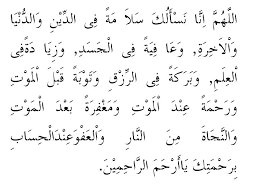 اَللّٰهُمَّ اِنَّا نَسْأَلُكَ سَلَا مَةً فِى الدِّيْنِ وَالدُّنْيَا
وَاْلاَخِرَةِ, وَعَا فِيَةً فِى الْجَسَدِ, وَزِيَا دَةًفِى
الْعِلْمِ, وَبَرَكَةً فِى الرِّزْقِ وَتَوْبَةً قَبْلَ الْمَوْتِ
وَرَحْمَةً عِنْدَ اْلمَوْتِ وَمَغْفِرَةً بَعْدَ الْمَوْتِ
وَالنَّجَاةَ مِنَ النَّارِ وَالْعَفْوَعِنْدَالْحِسَابِ
بِرَحْمَتِكَ يَاأَرْحَمَ الرَّاحِمِيْنَ.